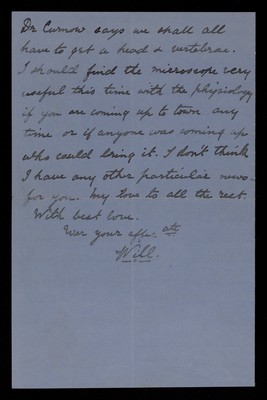 Dr Curnow says we shall all
have to get a head & vertebrae.
I should find the microscope very
useful this time with the physiology
if you are coming up to town any
time or if anyone was coming up
who could bring it. I don't think
I have any other particular news
for you. My love to all the rest.
With best love.
Ever your affec. ate
Will.